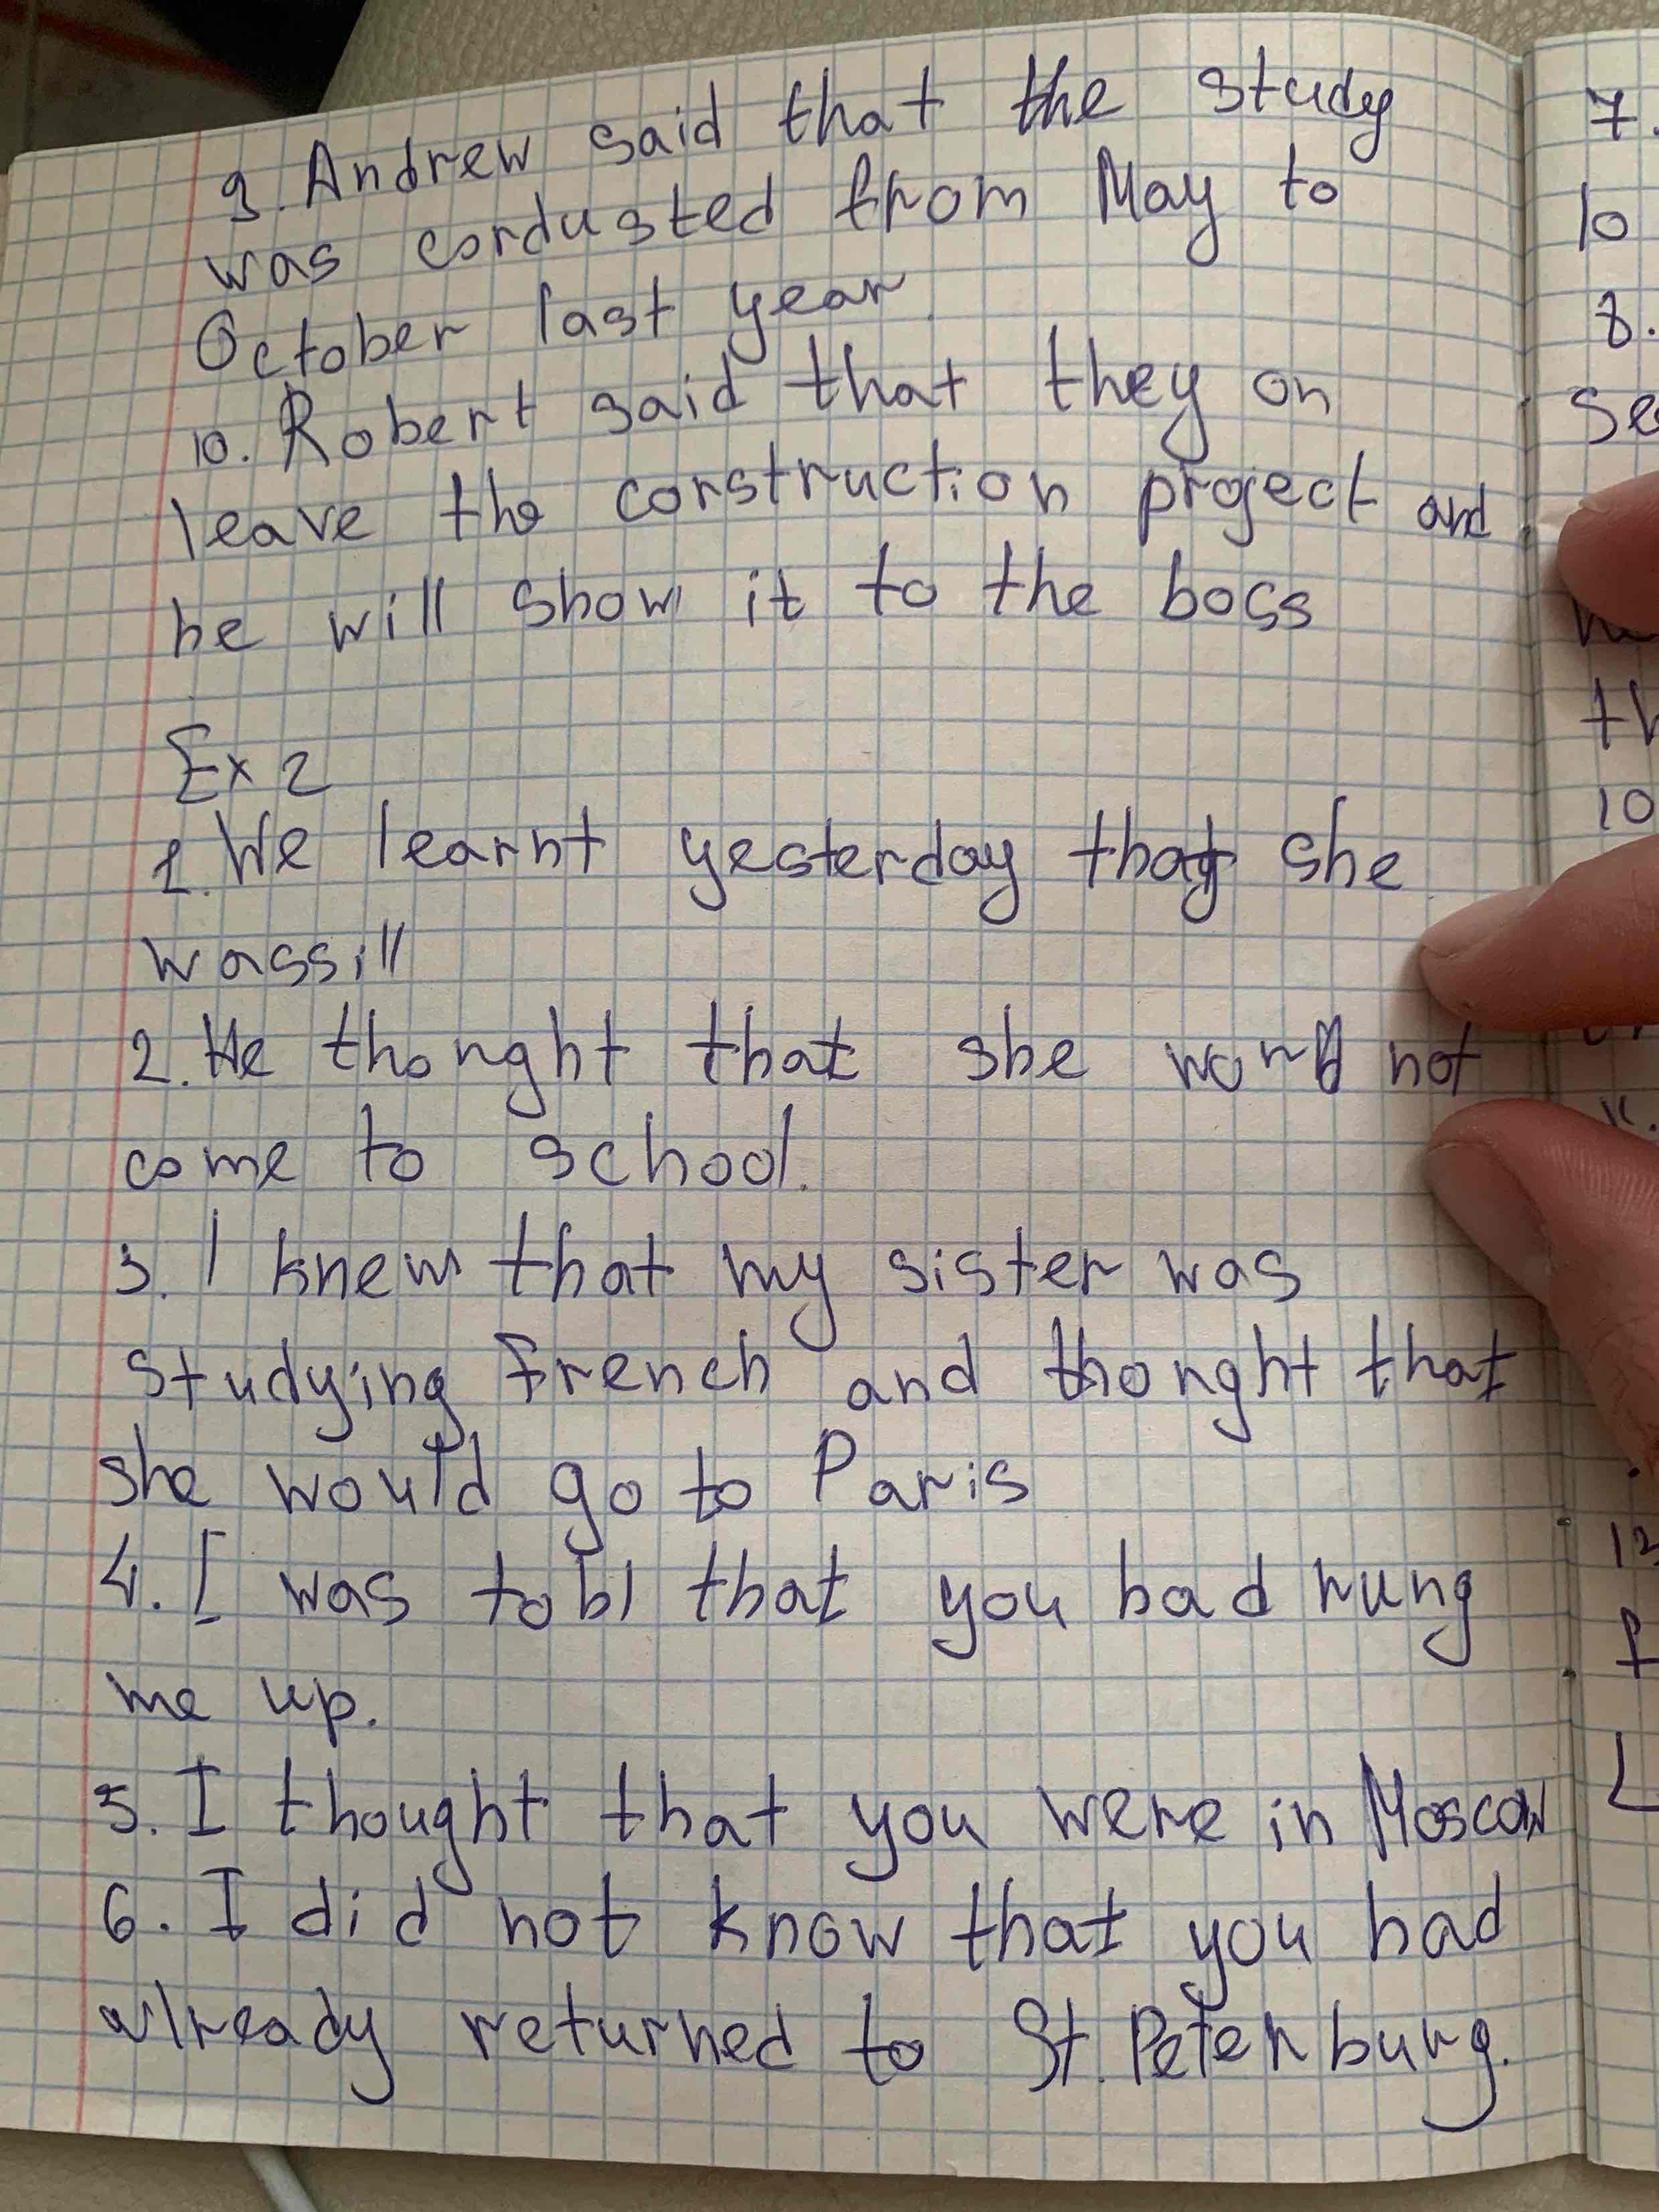 9. Andrew said that the study
was cordusted from May to
October last year
10. Robert said that they on
leave the construction project and
he will show it to the boss
Ex 2
1. We learnt yesterday that she
wassill
2. He thonght that she not
come to school.
3. I knew that my sister was
studying French and thonght that
she would go to Paris
4. I was tobl that you had rung
me up.
5. I thought that you were in Moscow
6. I did not know that you had
already returned to St. Peterburg.
7.
10
8.
Se
th
10
12
f
L